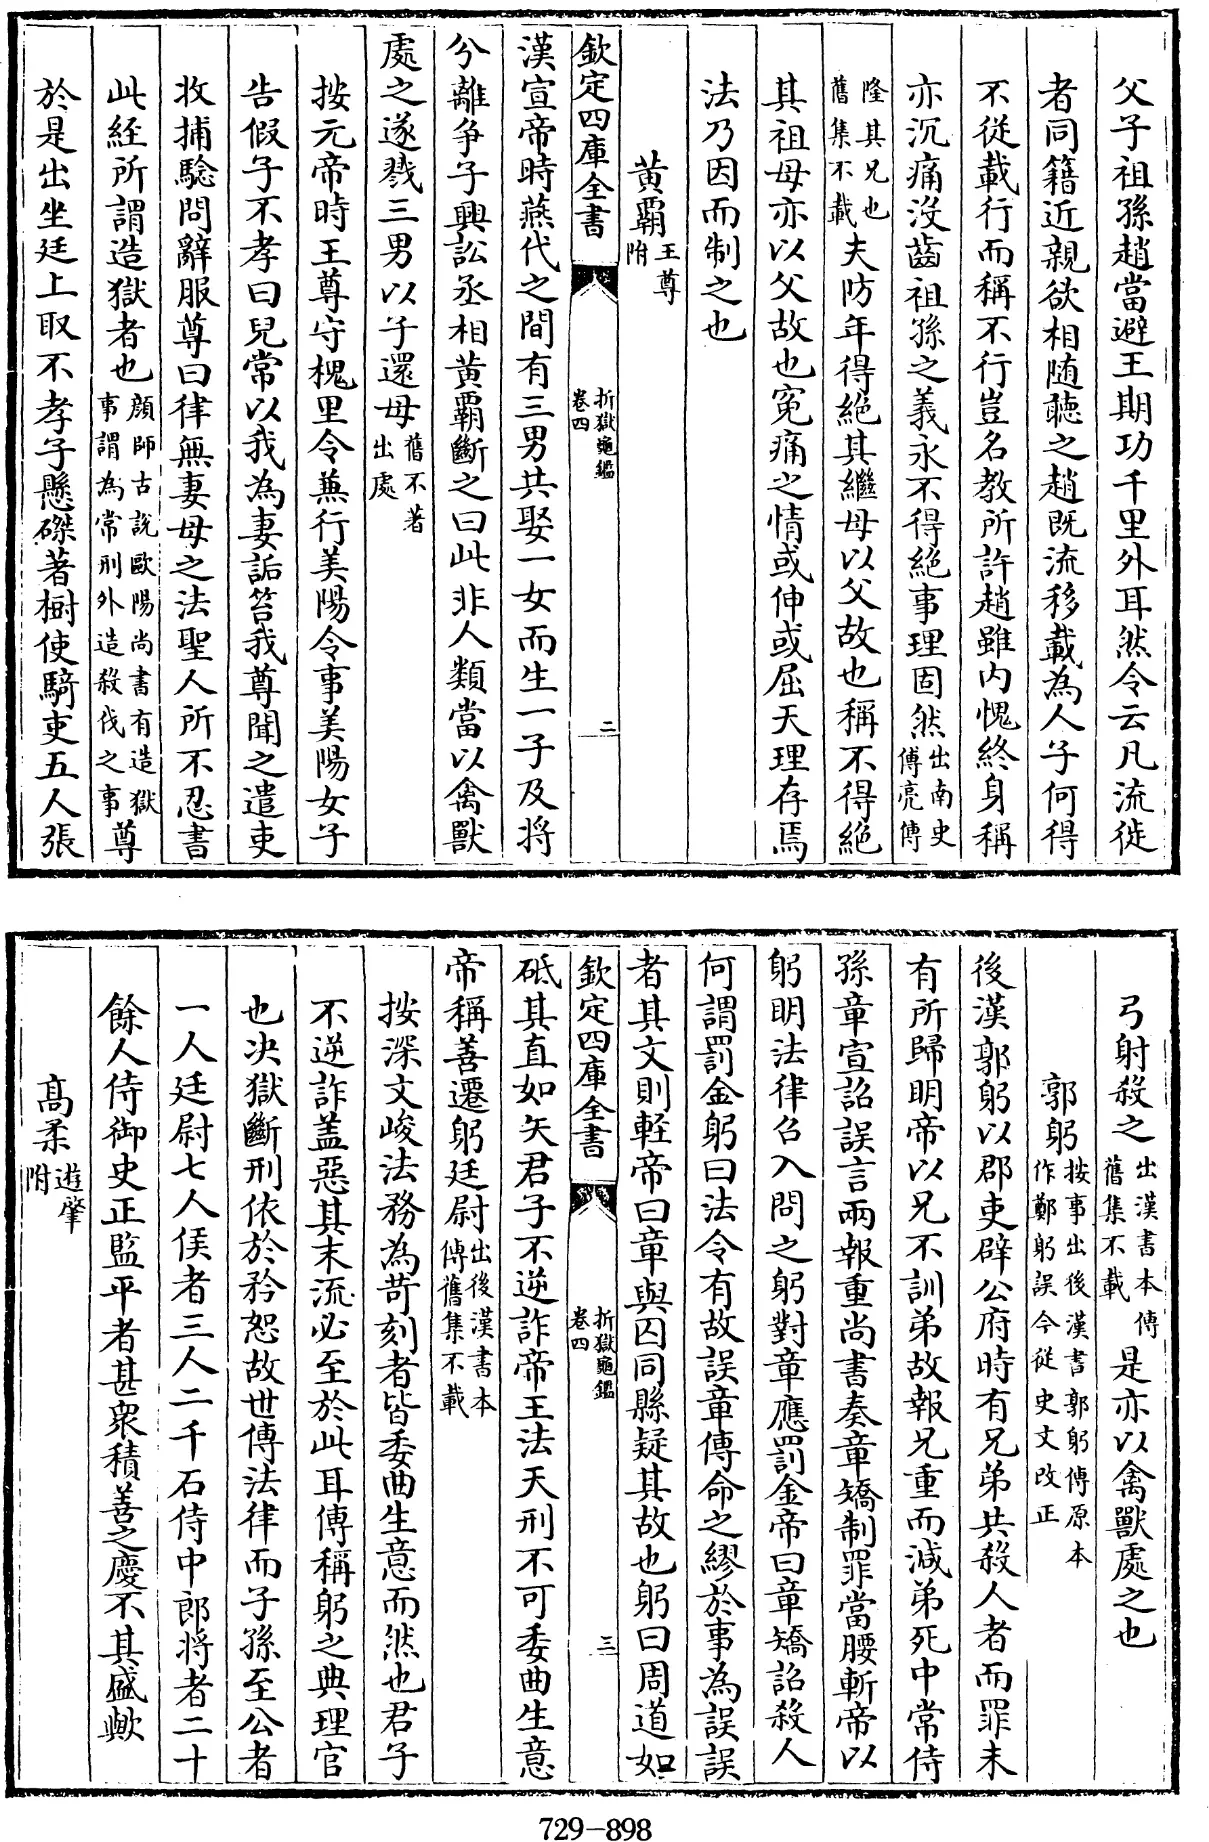 父子祖孫趙當避王期功千里外耳然令云凡流徙
者同籍近親欲相隨聽之趙既流移載為人子何得
不從載行而稱不行豈名教所許趙雖内愧終身稱
亦沉痛沒齒祖孫之義永不得絶事理固然出南史傅亮傳
隆其兄也舊集不載夫防年得絶其繼母以父故也稱不得絶
其祖母亦以父故也寃痛之情或伸或屈天理存焉
法乃因而制之也
黄霸王尊附
欽定四庫全書
折獄龜鑑
卷四
二
漢宣帝時燕代之間有三男共娶一女而生一子及将
分離爭子興訟丞相黄霸斷之曰此非人類當以禽獸
處之遂戮三男以子還母舊不著出處
按元帝時王尊守槐里令兼行美陽令事美陽女子
告假子不孝曰兒常以我為妻詬笞我尊聞之遣吏
收捕驗問辭服尊曰律無妻母之法聖人所不忍書
此經所謂造獄者也顔師古說歐陽尚書有造獄事謂為常刑外造殺伐之事尊
於是出坐廷上取不孝子懸磔著樹使騎吏五人張
弓射殺之出漢書本傳舊集不載是亦以禽獸處之也
郭躬按事出後漢書郭躬傳原本作鄭躬誤今從史文改正
後漢郭躬以郡吏辟公府時有兄弟共殺人者而罪未
有所歸明帝以兄不訓弟故報兄重而減弟死中常侍
孫章宣詔誤言兩報重尚書奏章矯制罪當腰斬帝以
躬明法律召入問之躬對章應罰金帝曰章矯詔殺人
何謂罰金躬曰法令有故誤章傳命之繆於事為誤誤
者其文則輕帝曰章與囚同縣疑其故也躬曰周道如
欽定四庫全書
折獄龜鑑
卷四
三
砥其直如矢君子不逆詐帝王法天刑不可委曲生意
帝稱善遷躬廷尉出後漢書本傳舊集不載
按深文峻法務為苛刻者皆委曲生意而然也君子
不逆詐盖惡其末流必至於此耳傳稱躬之典理官
也决獄斷刑依於矜恕故世傳法律而子孫至公者
一人廷尉七人侯者三人二千石侍中郎将者二十
餘人侍御史正監平者甚衆積善之慶不其盛歟
髙柔遊肇附
729－898